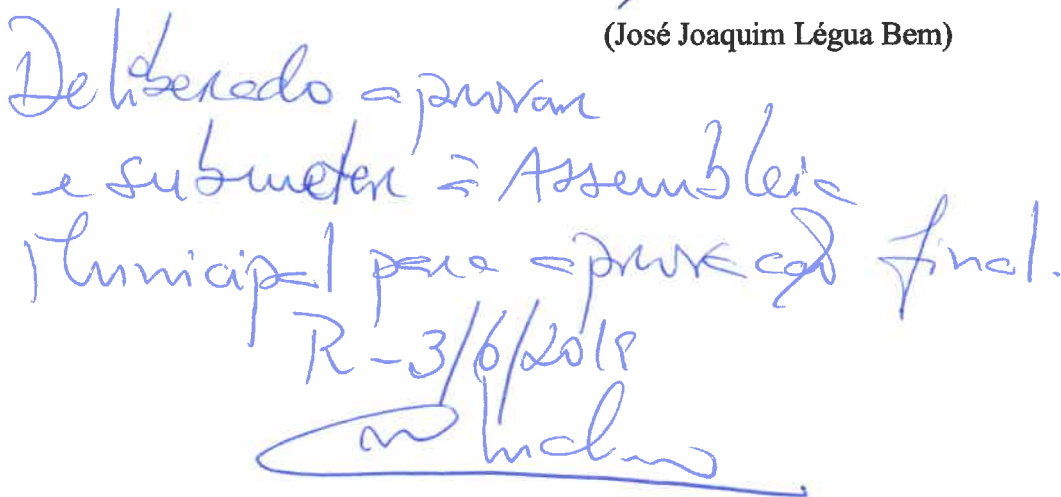 (José Joaquim Légua Bem)
Deliberado aprovar
e submeter à Assembleia
Municipal para aprovação final.
R-3/6/2018